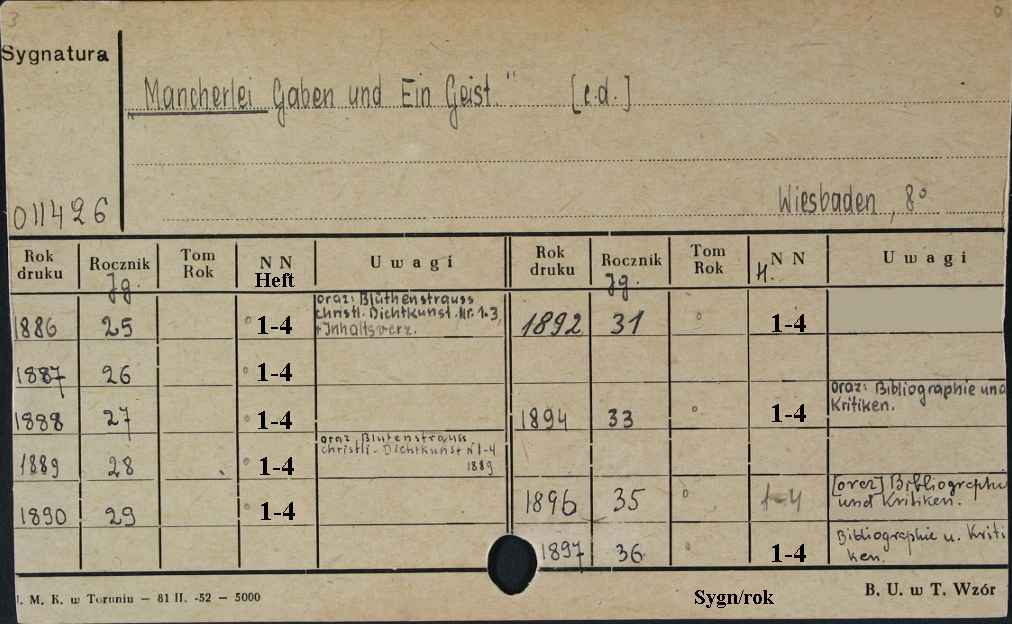 3
Sygnatura
Mancherlei Gaben und Ein Geist." [e.d.]
011426
Wiesbaden, 8°
Rok druku Rocznik Jg. Tom Rok NN Heft Uwagi Rok druku Rocznik Jg. Tom Rok NN H. Uwagi
1886 25 1-4 oraz: Blüthenstrauss
christl. Dichtkunst. Nr. 1-3,
+ Inhaltsverz.
1892 31 1-4
1887 26 1-4
1888 27 1-4
1894 33 1-4 oraz: Bibliographie und
Kritiken.
1889 28 1-4 oraz Blütenstrauss
christli. Dichtkunst N 1-4
1889
1896 35 1-4 [oraz] Bibliographie
und Kritiken.
1890 29 1-4
1897 36 1-4 Bibliographie u. Kriti
ken.
I. M. K. w Toruniu — 81 II. -52 — 5000
Sygn/rok
B. U. w T. Wzór